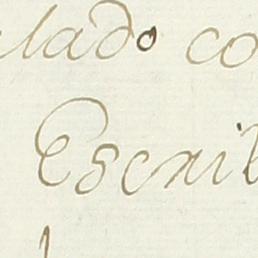 lado co
Escrib